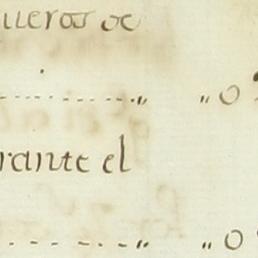 ueros de
------------ „ „ 0
rante el
------------ „ „ 0